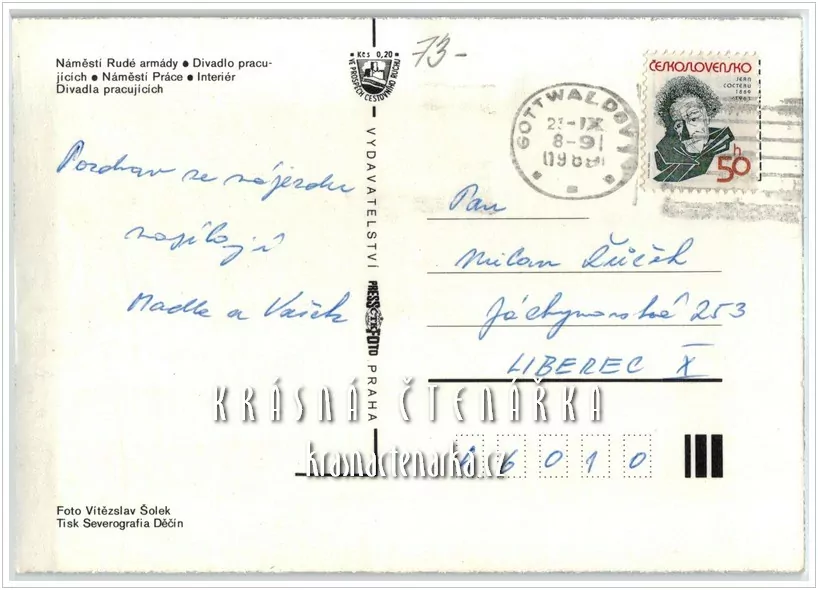 Náměstí Rudé armády ● Divadlo pracu-
jících ● Náměstí Práce ● Interiér
Divadla pracujících
Kčs 0,20
VE PROSPĚCH CESTOVNÍHO RUCHU
73-
GOTTWALDOV 1
23-IX
8-9
1989
ČESKOSLOVENSKO
JEAN
COCTEAU
1889
1963
50 h
Pozdrav ze zájezdu
zasílají
Madla a Vašek
VYDAVATELSTVÍ PRESSFOTO PRAHA
ČTK
Pan
Milan
Jáchymovská 253
LIBEREC X
KRÁSNÁ ČTENÁŘKA
krasnactenarka.cz
46010
Foto Vítězslav Šolek
Tisk Severografia Děčín